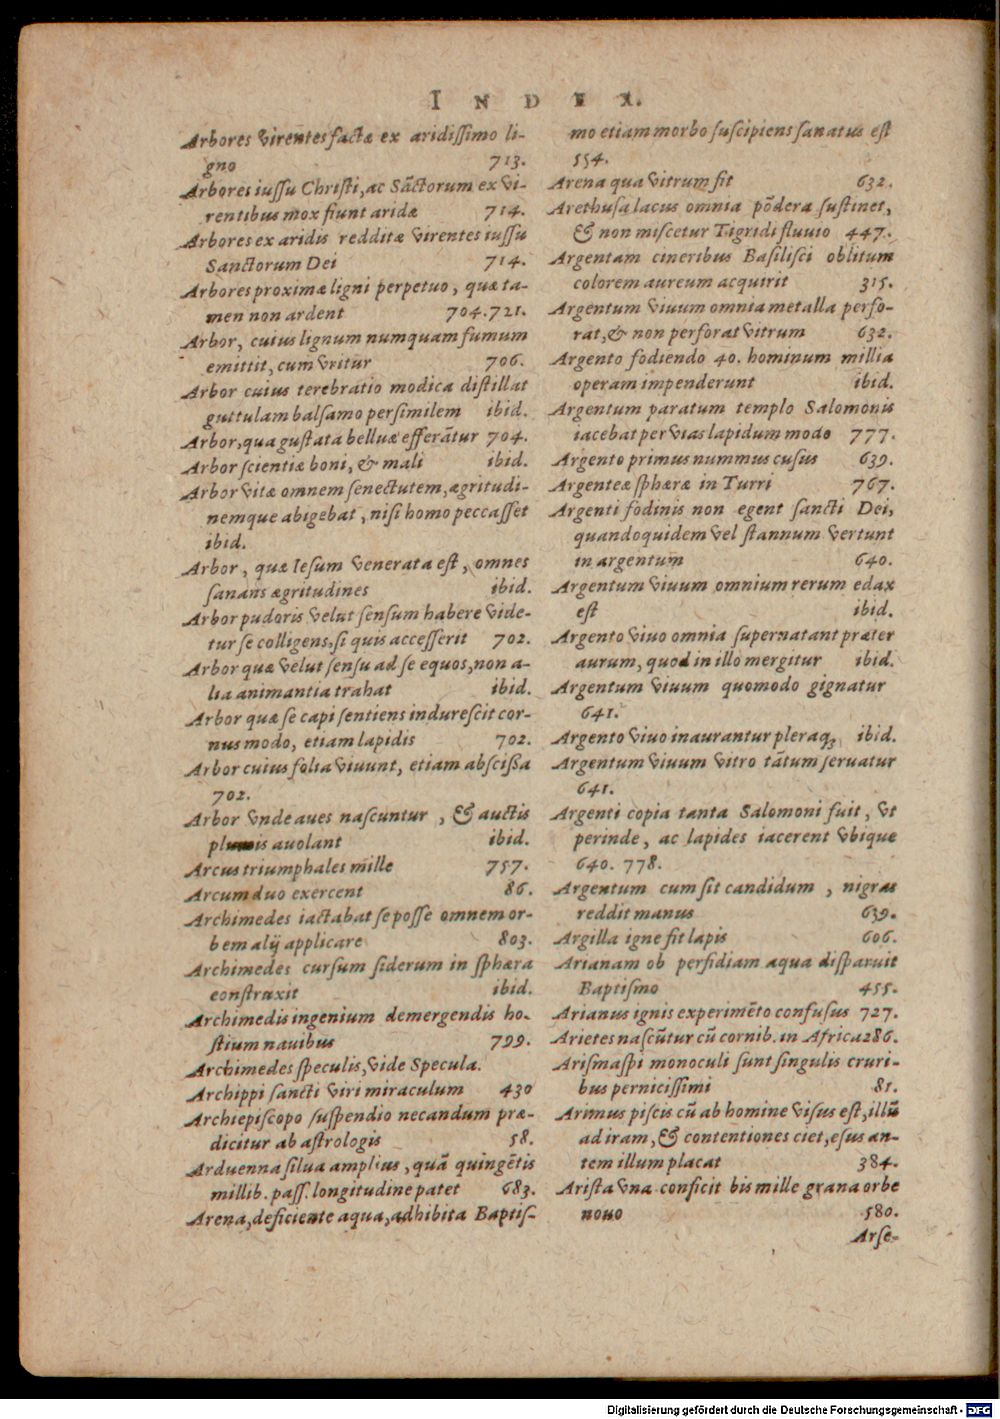 INDEX.
Arbores virentes factæ ex aridissimo li-
gno 713.
Arbores iussu Christi, ac Sāctorum ex vi-
rentibus mox fiunt aridæ 714.
Arbores ex aridis redditæ virentes iussu
Sanctorum Dei 714.
Arbores proximæ ligni perpetuo, quæ ta-
men non ardent 704. 721.
Arbor, cuius lignum numquam fumum
emittit, cum vritur 706.
Arbor cuius terebratio modica distillat
guttulam balsamo persimilem ibid.
Arbor, qua gustata belluæ efferātur 704.
Arbor scientiæ boni, & mali ibid.
Arbor vitæ omnem senectutem, ægritudi-
nemque abigebat, nisi homo peccasset
ibid.
Arbor, quæ Iesum venerata est, omnes
sanans ægritudines ibid.
Arbor pudoris velut sensum habere vide-
tur se colligens, si quis accesserit 702.
Arbor quæ velut sensu ad se equos, non a-
lia animantia trahat ibid.
Arbor quæ se capi sentiens indurescit cor-
nus modo, etiam lapidis 702.
Arbor cuius folia viuunt, etiam abscißa
702.
Arbor vnde aues nascuntur, & auctis
plumis auolant ibid.
Arcus triumphales mille 757.
Arcum duo exercent 86.
Archimedes iactabat se posse omnem or-
bem alij applicare 803.
Archimedes cursum siderum in sphæra
construxit ibid.
Archimedis ingenium demergendis ho-
stium nauibus 799.
Archimedes speculis, vide Specula.
Archippi sancti viri miraculum 430
Archiepiscopo suspendio necandum præ-
dicitur ab astrologis 58.
Arduenna silua amplius, quā quingētis
millib. pass. longitudine patet 683.
Arena, deficiente aqua, adhibita Baptis-
mo etiam morbo suscipiens sanatus est
554.
Arena qua vitrum fit 632.
Arethusa lacus omnia pōdera sustinet,
& non miscetur Tigridi fluuio 447.
Argentam cineribus Basilisci oblitum
colorem aureum acquirit 315.
Argentum viuum omnia metalla perfo-
rat, & non perforat vitrum 632.
Argento fodiendo 40. hominum millia
operam impenderunt ibid.
Argentum paratum templo Salomonis
iacebat per vias lapidum modo 777.
Argento primus nummus cusus 639.
Argenteæ sphæræ in Turri 767.
Argenti fodinis non egent sancti Dei,
quandoquidem vel stannum vertunt
in argentum 640.
Argentum viuum omnium rerum edax
est ibid.
Argento viuo omnia supernatant præter
aurum, quod in illo mergitur ibid.
Argentum viuum quomodo gignatur
641.
Argento viuo inaurantur pleraq; ibid.
Argentum viuum vitro tātum seruatur
641.
Argenti copia tanta Salomoni fuit, vt
perinde, ac lapides iacerent vbique
640. 778.
Argentum cum sit candidum, nigras
reddit manus 639.
Argilla igne fit lapis 606.
Arianam ob perfidiam aqua disparuit
Baptismo 455.
Arianus ignis experimēto confusus 727.
Arietes nascūtur cū cornib. in Africa 286.
Arismaspi monoculi sunt singulis cruri-
bus pernicissimi 81.
Arimus piscis cū ab homine visus est, illū
ad iram, & contentiones ciet, esus au-
tem illum placat 384.
Arista vna conficit bis mille grana orbe
nouo 580.
Arse-
Digitalisierung gefördert durch die Deutsche Forschungsgemeinschaft - DFG